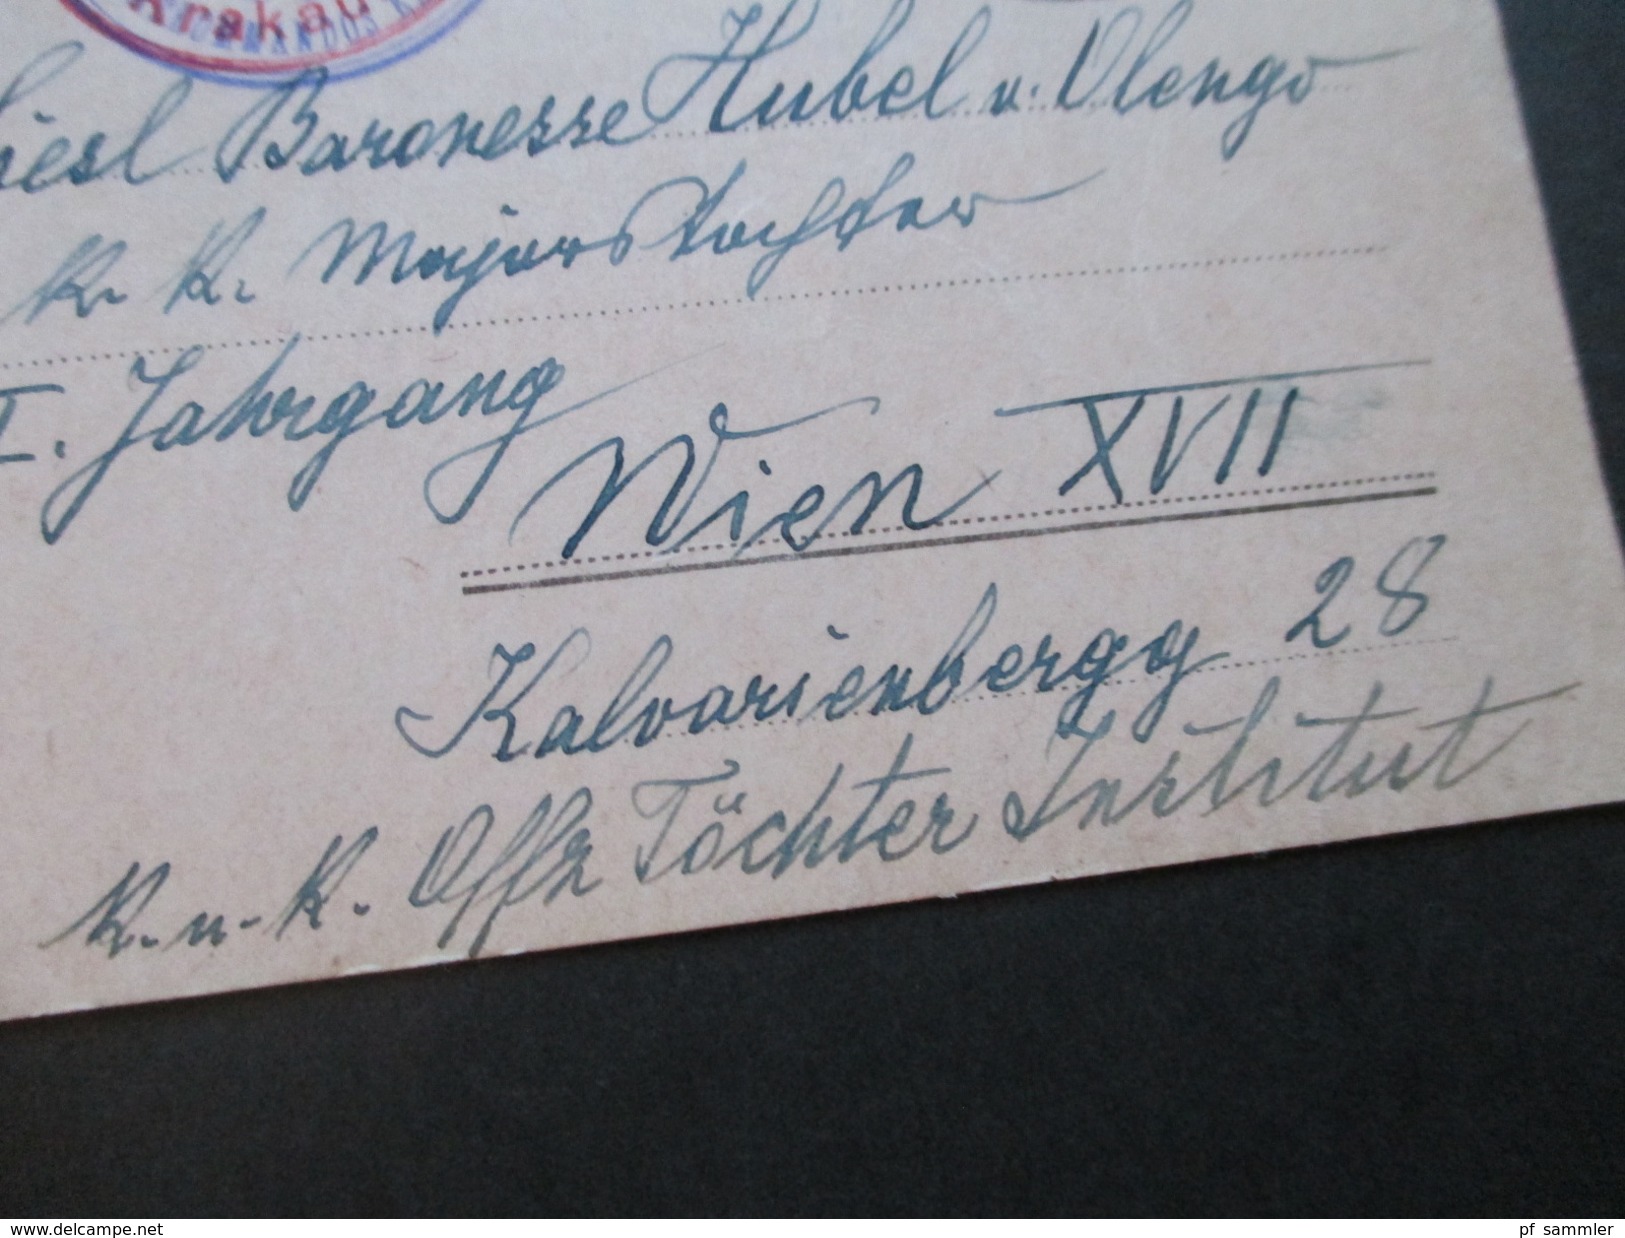 Krakau
Liesl Baronesse Hubel v. Olengo
K. K. Majorstochter
I. Jahrgang
Wien XVII
Kalvarienbergg 28
K. u. K. Offz Töchter Institut
www.delcampe.net
pf_sammler